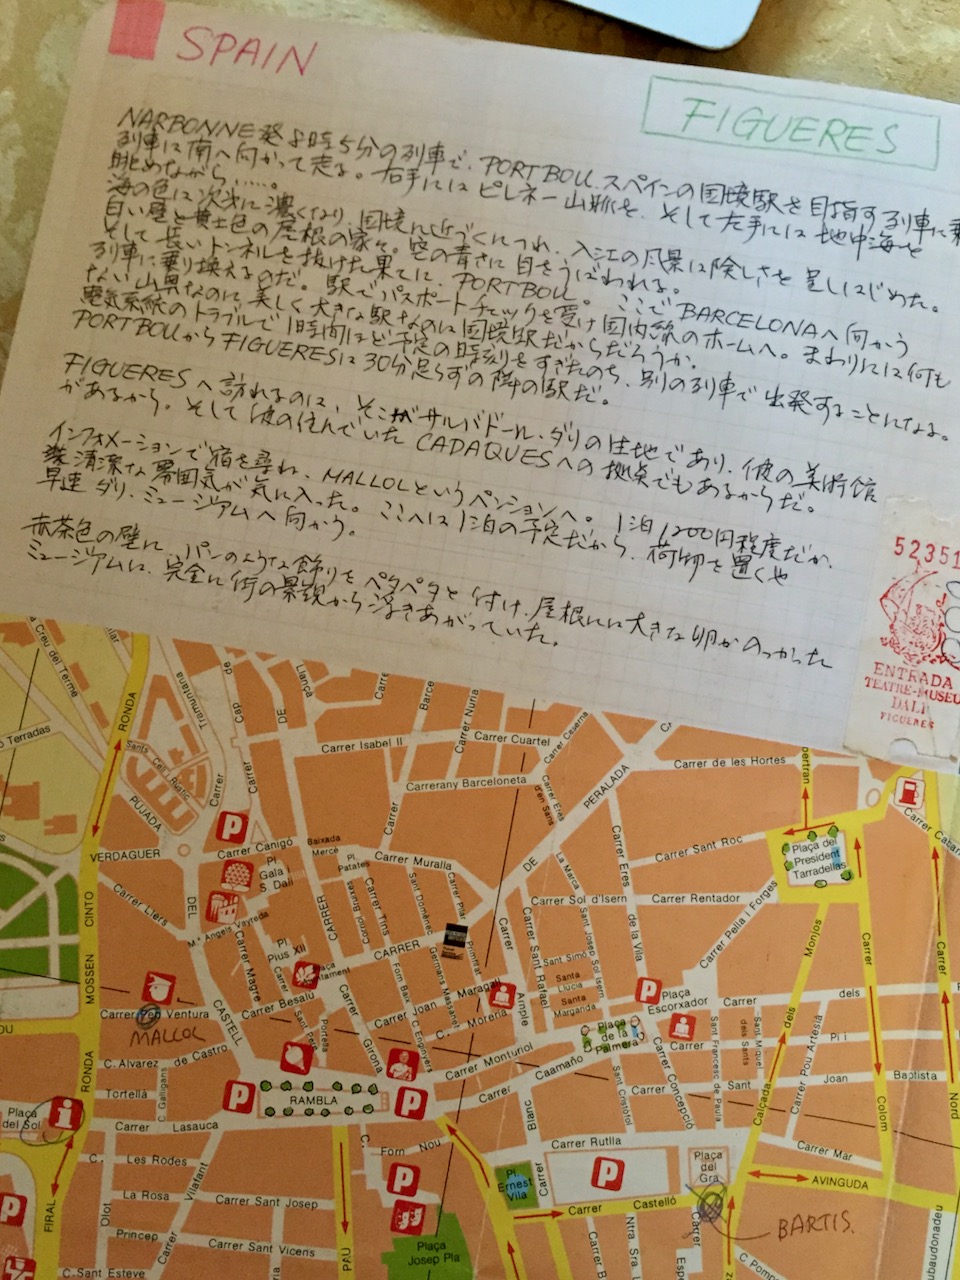 SPAIN
FIGUERES
NARBONNE発8時5分の列車で、PORTBOU、スペインの国境駅を目指す列車に乗
列車は南へ向かって走る。右手にはピレネー山脈を、そして左手には地中海を
眺めながら……。
海の色は次第に濃くなり、国境に近づくにつれ、入江の風景は険しさを呈しはじめた。
白い壁と黄土色の屋根の家々。空の青さに目をうばわれる。
そして長いトンネルを抜けた果てに、PORTBOU。ここでBARCELONAへ向かう
列車に乗り換えるのだ。駅でパスポートチェックを受け国内線のホームへ。まわりには何も
ない山奥なのに、美しく大きな駅なのは国境駅だからだろうか。
電気系統のトラブルで1時間ほど予定の時刻をすぎたのち、別の列車で出発することになる。
PORTBOUからFIGUERESは30分足らずの隣の駅だ。
FIGUERESへ訪れるのは、そこがサルバドール・ダリの生地であり、彼の美術館
があるから。そして彼の住んでいたCADAQUESへの拠点でもあるからだ。
インフォメーションで宿を尋ね、MALLOLというペンションへ。1泊1,200円程度だが、
清潔な雰囲気が気に入った。ここへは1泊の予定だから、荷物を置くや
早速ダリ・ミュージアムへ向かう。
赤茶色の壁に、パンのような飾りをペタペタと付け、屋根には大きな卵がのっかった
ミュージアムは、完全に街の景観から浮きあがっていた。
52351
ENTRADA
TEATRE-MUSEU
DALI
FIGUERES
Creu del Terme
Terradas
RONDA
Tramuntana
Llançà
Carrer Isabel II
Carrer Cuartel
Carrer Nuria
Carrerany Barceloneta
PERALADA
Carrer de les Hortes
PUJADA
VERDAGUER
Carrer Canigó
Baixada
Mercè
Pl.
Patates
Carrer Muralla
Pl.
Gala i
S. Dalí
Carrer Sant Roc
Plaça del
President
Tarradellas
Carrer Llers
DEL
Mª Angels Vayreda
CARRER
Carrer Sol d'Isern
Carrer Rentador
Carrer Pella i Forges
CINTO
MOSSEN
RONDA
Pl.
Pius XII
Carrer Magre
Carrer Besalú
CASTELL
Carrer Pep Ventura
MALLOL
C. Alvarez de Castro
Tortellà
C. Galligans
Carrer Joan Maragall
Sant Simó
Santa
Llúcia
Santa
Marganda
Plaça
Escorxador
Plaça
de la
Palmera
Carrer Monturiol
Carrer Caamaño
Girona
RAMBLA
Plaça
del Sol
Carrer Lasauca
Les Rodes
La Rosa
Princep
C. Sant Esteve
Carrer Vilafant
Carrer Sant Josep
Carrer Sant Vicens
C. Forn Nou
PAU
FIRAL
Olot
Plaça
Josep Pla
Pl.
Ernest
Vila
Carrer Rutlla
Carrer Castelló
Plaça
del
Gra
Carrer Concepció
Carrer Sant Joan Baptista
Carrer Pou Artesià
Calçada dels Monjos
Carrer Colom
Carrer Mar
AVINGUDA
Nord
BARTIS.